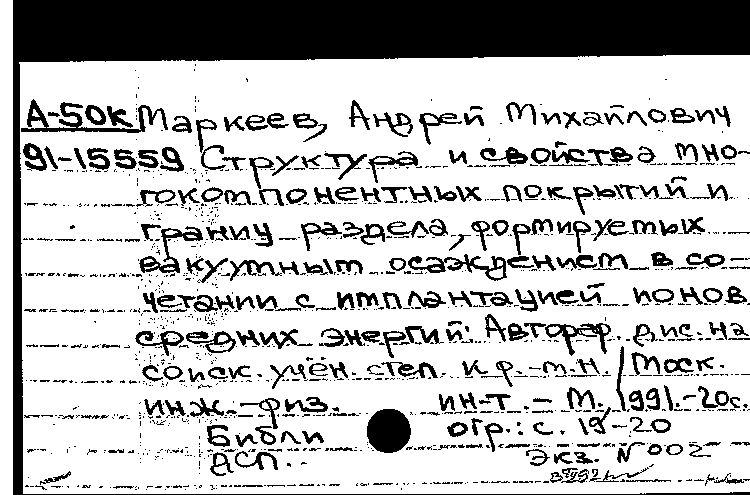 А-50к Маркеев, Андрей Михайлович
91-15559 Структура и свойства мно-
гокомпонентных покрытий и
границ раздела, формируемых
вакуумным осаждением в со-
четании с имплантацией ионов
средних энергий: Автореф. дис. на
соиск. учён. степ. к.ф.-м.н. / Моск.
инж.-физ. ин-т. - М. 1991.-20с.
Библи огр.: с. 19-20
ДСП.. Экз. N 002